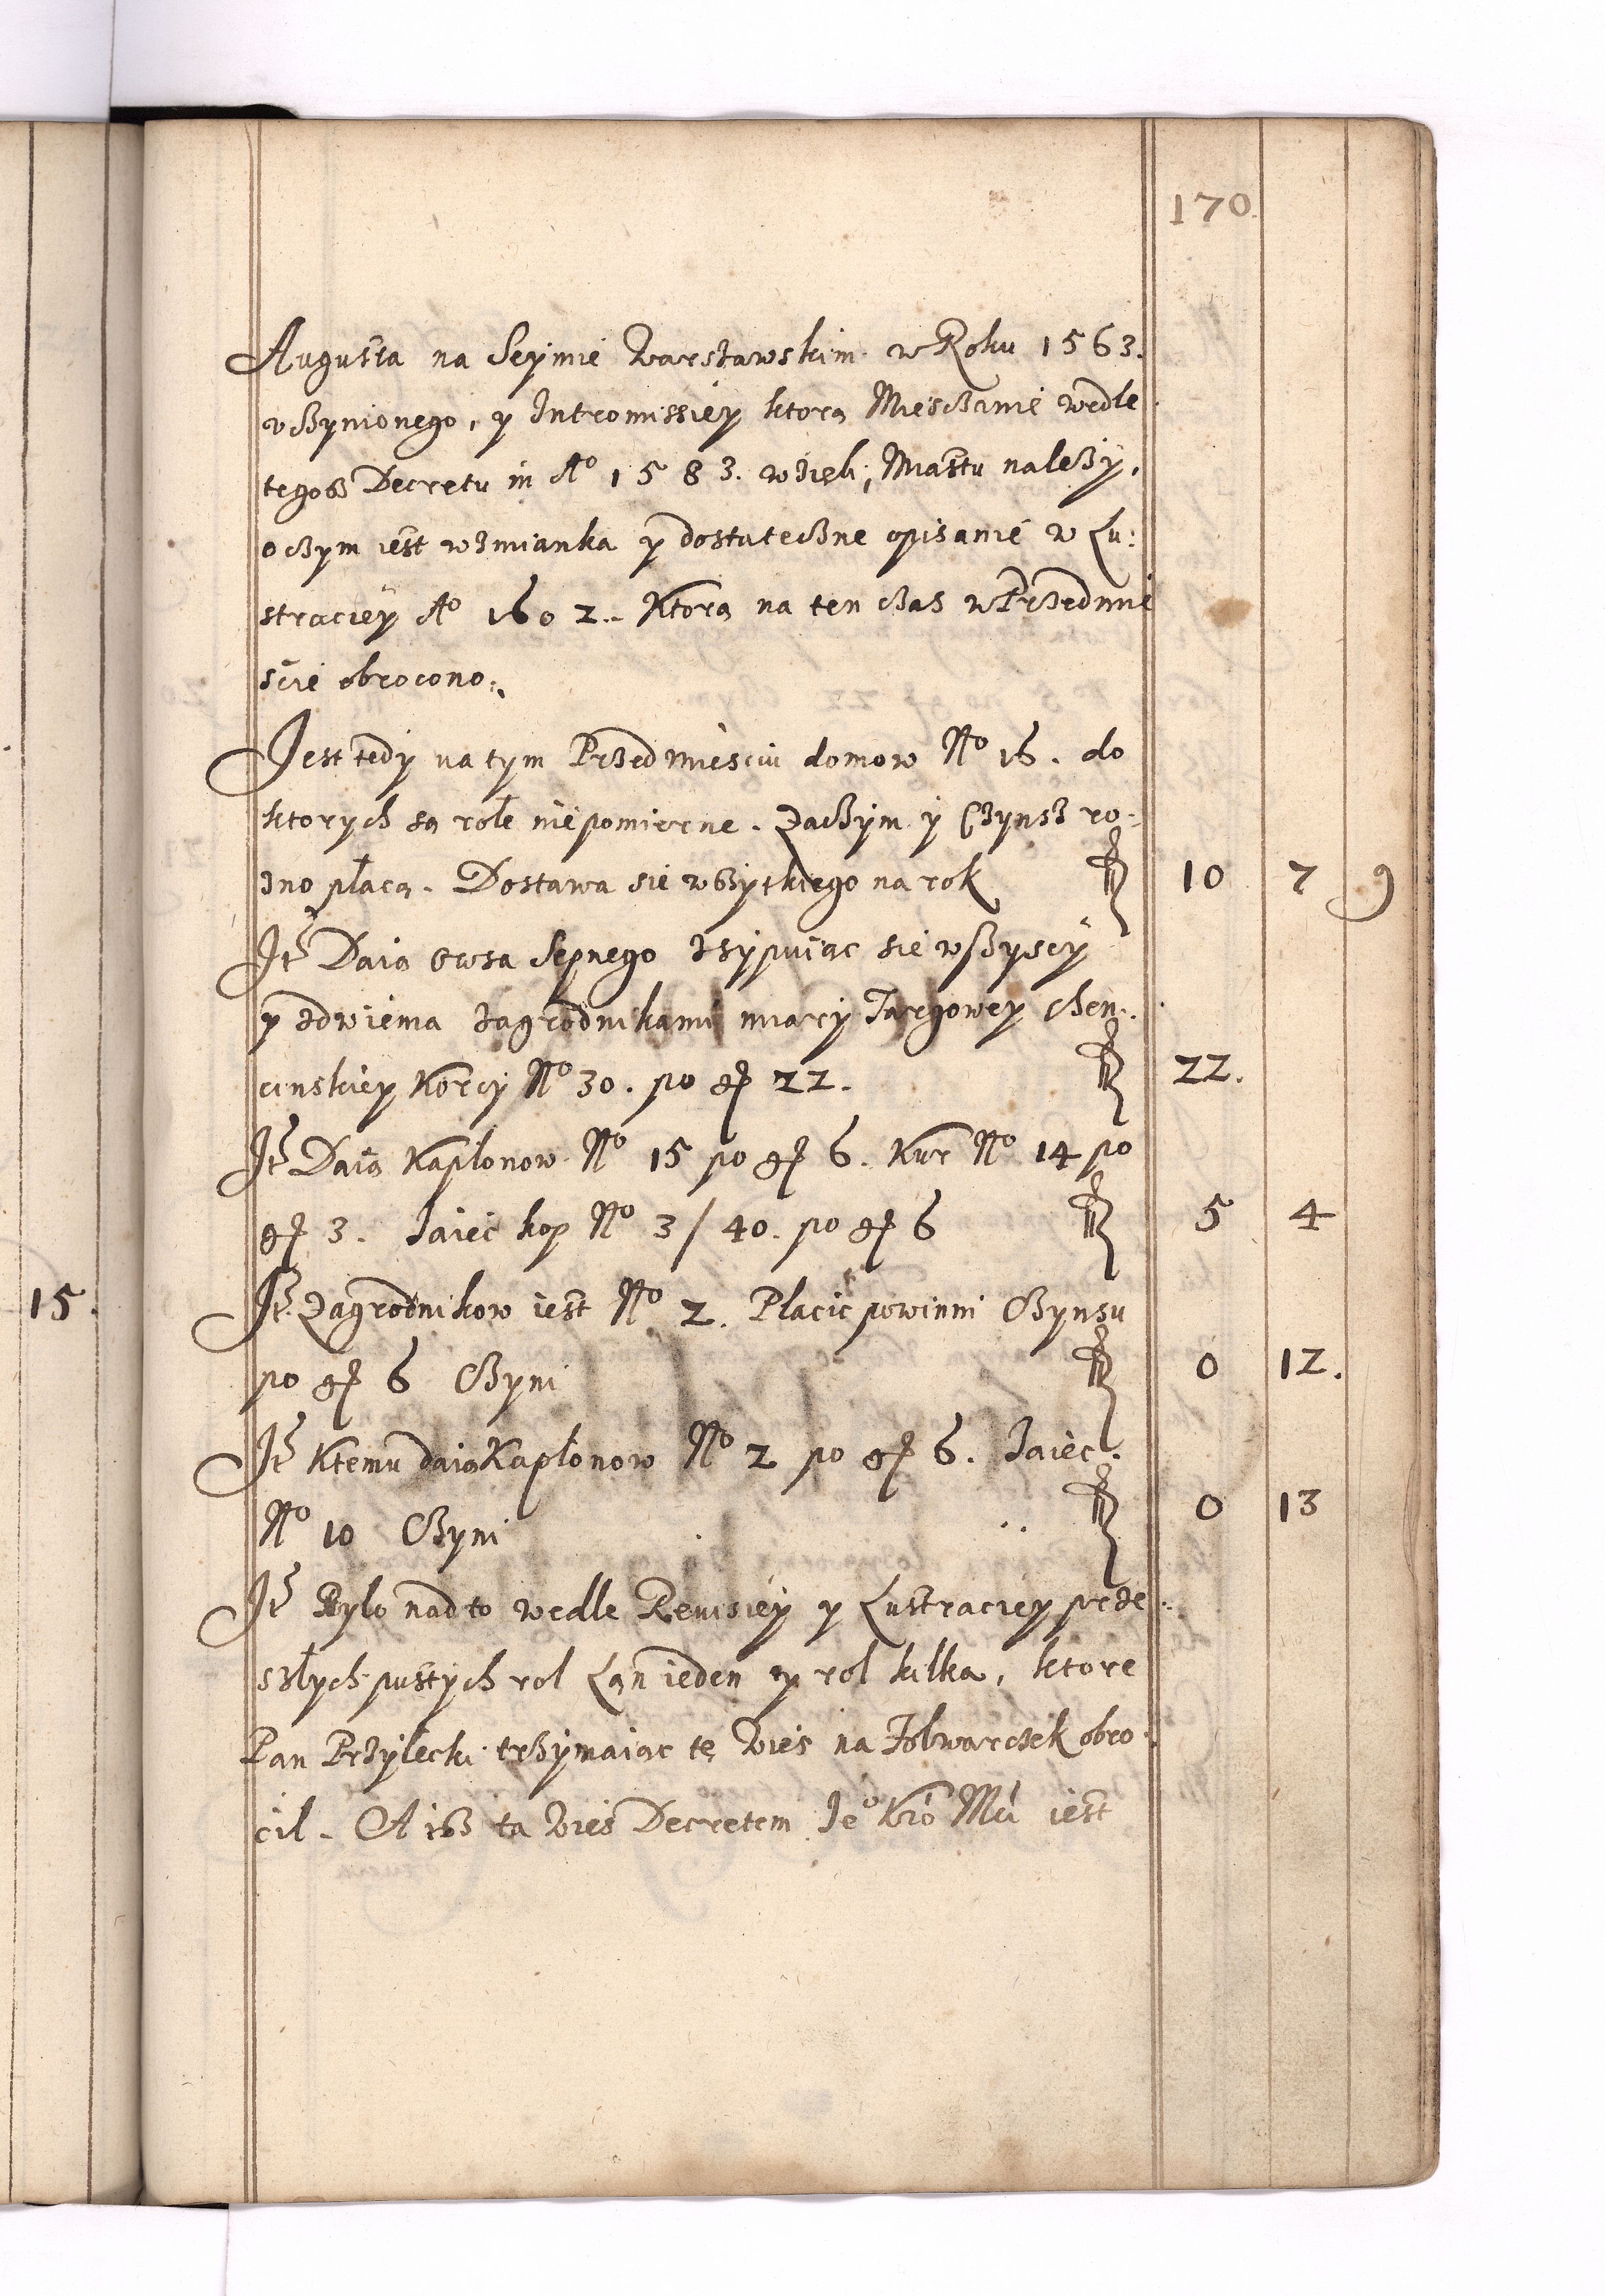 170.
Augusta na Seymie Warszawskim w Roku 1563.
vczynionego, y Intromissiey ktorą Miesczanie wedle
tegosz Decretu in Aº 1583. wzięli, Miastu należy,
o czym iest wzmianka y dostateczne opisanie w Lu:
straciey Aº 1602. Ktorą na ten czas w Przedmie
scie obrocono.
Jest tedy na tym Przedmiesciu domow Nº 16. do
ktorych są role niepomierne. Zaczym y Czynsz ro:
zno płacą. Dostawa sie wszytkiego na rok fl 10 7 9
It Daią Owsa Sepnego zsypuiąc sie wszyscy
y zdwiema zagrodnikami miary Targowey Chen:
cinskiey Korcy Nº 30. po gr 22. fl 22.
It Daią Kapłonow Nº 15 po gr 6. Kur Nº 14 po
gr 3. Iaiec kop Nº 3/40. po gr 6 fl 5 4
It Zagrodnikow iest Nº 2. Płacić powinni Czynsu
po gr 6 Czyni fl 0 12.
It Ktemu daią Kapłonow Nº 2 po gr 6. Iaiec
Nº 10 Czyni fl 0 13
It Było nadto wedle Reuisiey y Lustraciey prze:
szłych pustych rol Łan ieden y rol kilka, ktore
Pan Przyłecki trzymaiąc tę Wies na Folwarczek obro:
cił. A isz ta Wies Decretem Ie° Kro Mci iest
15.